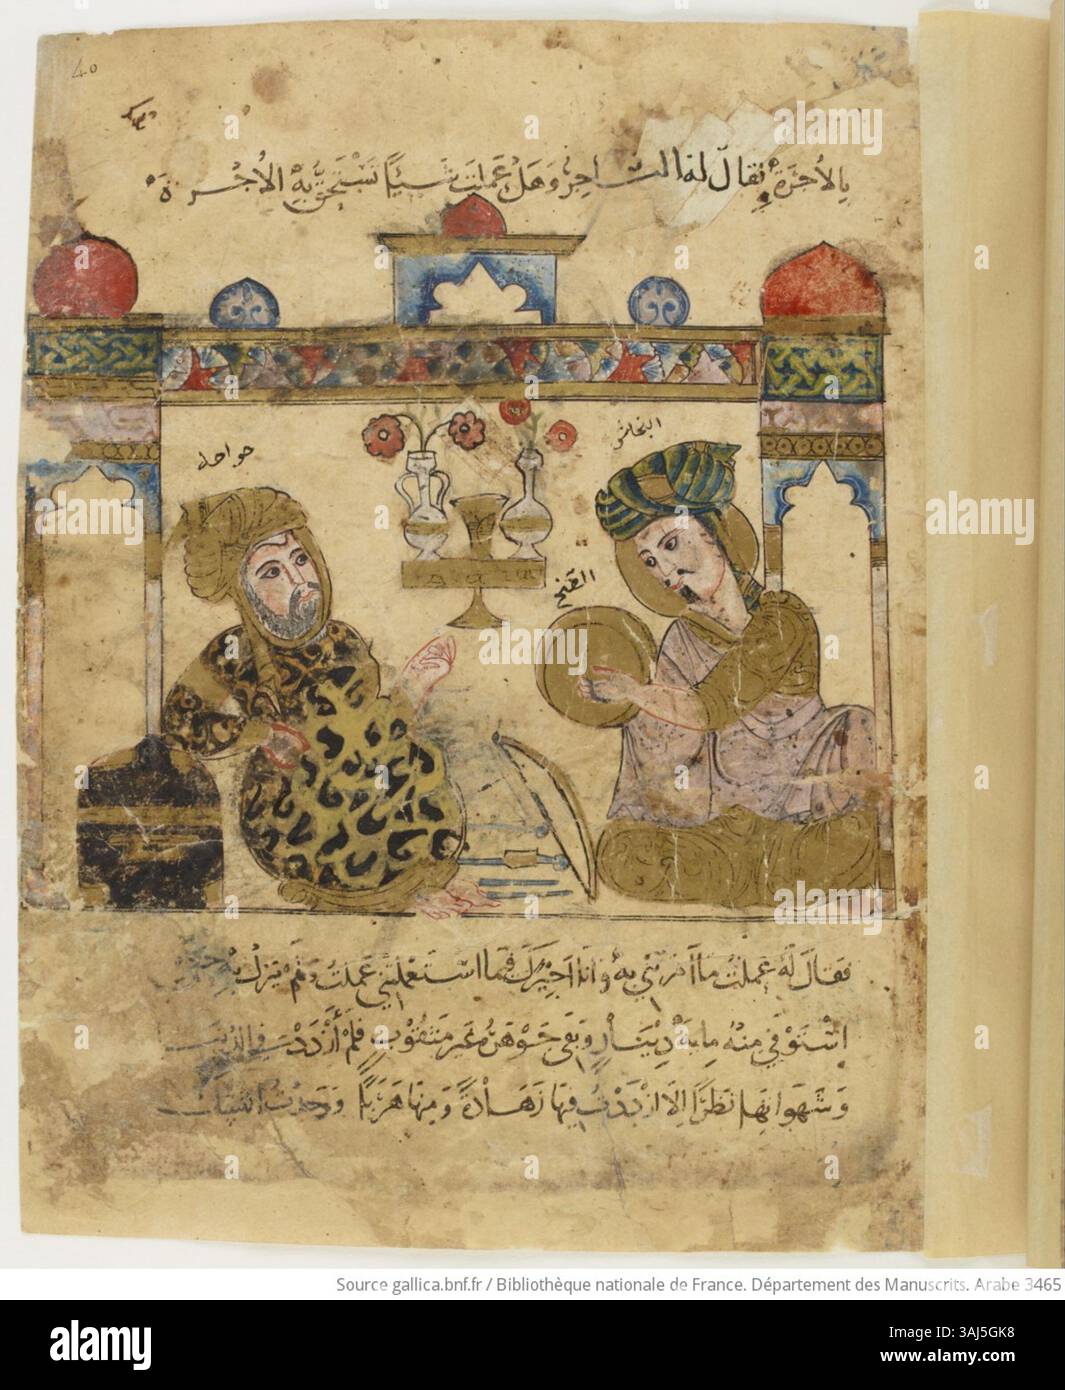 40
بِالأُجْرَةِ فقالَ لهُ التَّاجِرُ وَهَلْ عَمِلتَ شَيئًا تَسْتَحِقُّ بِهِ الأُجْرَةَ
الصنج
فقالَ لَهُ عَمِلتُ مَا أَمَرْتَنِي بِهِ وَأَنَا أَجِيرُكَ فَمَا اسْتَعْمَلْتَنِي عَمِلتُ وَلَمْ يَزَلْ بِهِ حتى
اسْتَوْفَى مِنْهُ مِايةَ دِينَارٍ وَبَقِيَ جَوْهَرُهُ غيرَ مَثْقُوبٍ فَلَمْ أَزْدَدْ في الدنيا
وَشَهَوَاتِهَا نَظَرًا إِلّا ازْدَدْتُ فِيهَا زَهَادَةً وَمِنهَا هَرَبًا وَوَجَدْتُ
alamy
a
Source gallica.bnf.fr / Bibliothèque nationale de France. Département des Manuscrits. Arabe 3465
alamy
Image ID: 3AJ5GK8
www.alamy.com